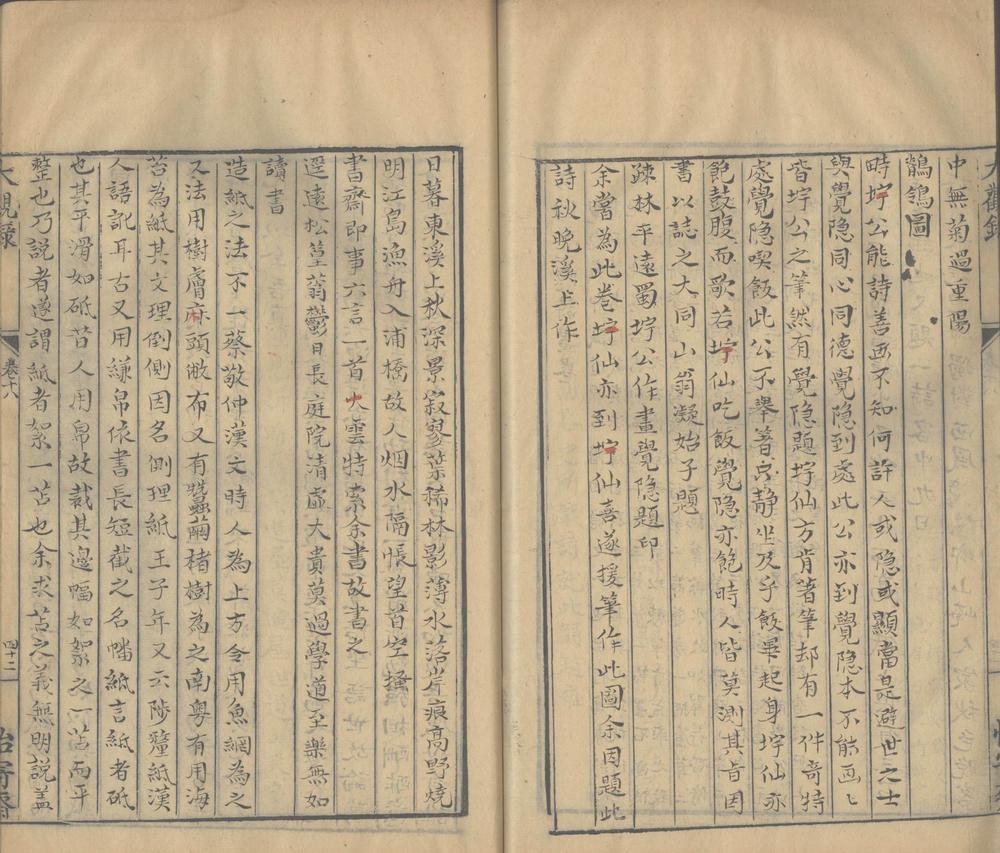 中無菊過重陽
鶺鴒圖
時㙁公能詩善画不知何許人或隐或顯當是避世之士
與覺隐同心同德覺隐到處此公亦到覺隐本不能画〻
皆㙁公之筆然有覺隐題㙁仙方肯著筆却有一件奇特
處覺隐喫飯此公不舉箸只静坐及乎飯畢起身㙁仙亦
飽鼓腹而歌若㙁仙吃飯覺隐亦飽時人皆莫測其旨因
書以誌之大同山翁凝始子題
疎林平遠蜀㙁公作畫覺隐題印
余嘗為此巻㙁仙亦到㙁仙喜遂援筆作此圖余因題此
詩秋晚溪上作
日暮東溪上秋深景寂寥葉稀林影薄水落岸痕高野燒
明江島漁舟入浦橋故人烟水隔悵望首空搔
書齋即事六言一首火雲特索余書故書之
逕遠松篁蓊鬱日長庭院清虛大貴莫過學道至樂無如
讀書
造紙之法不一蔡敬仲漢文時人為上方令用魚網為之
又法用樹膚麻頭敝布又有蠶繭楮樹為之南粤有用海
苔為紙其文理倒側因名側理紙王子年又云陟釐紙漢
人語訛耳古又用縑帛依書長短截之名幡紙言紙者砥
也其平滑如砥昔人用帛故裁其邊幅如絮之一苫而平
整也乃説者遂謂紙者絮一苫也余求苫之義無明説盖
大觀錄
卷十八
四十二
怡寄齋